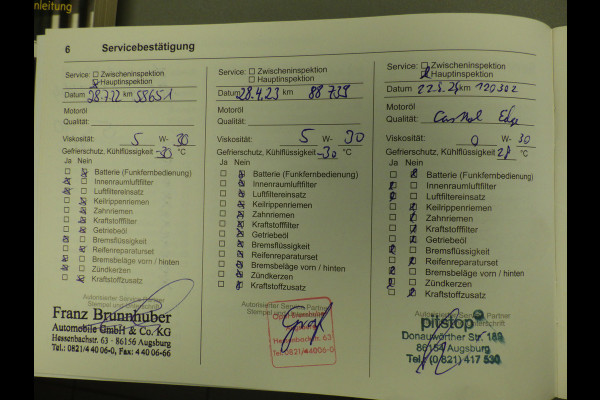 nleitung
6 Servicebestätigung
Service: Zwischeninspektion
Hauptinspektion
Datum 28.7.22 km 58651
Motoröl
Qualität:
Viskosität: 5 W- 30
Gefrierschutz, Kühlflüssigkeit -30 °C
Ja Nein
Batterie (Funkfernbedienung)
Innenraumluftfilter
Luftfiltereinsatz
Keilrippenriemen
Zahnriemen
Kraftstofffilter
Getriebeöl
Bremsflüssigkeit
Reifenreparaturset
Bremsbeläge vorn / hinten
Zündkerzen
Kraftstoffzusatz
Autorisierter Service Partner
Stempel und Unterschrift
Franz Brunnhuber
Automobile GmbH & Co. KG
Hessenbachstr. 63 - 86156 Augsburg
Tel.: 0821/4 40 06-0, Fax: 4 40 06-66
Service: Zwischeninspektion
Hauptinspektion
Datum 28.4.23 km 88739
Motoröl
Qualität:
Viskosität: 5 W- 30
Gefrierschutz, Kühlflüssigkeit -30 °C
Ja Nein
Batterie (Funkfernbedienung)
Innenraumluftfilter
Luftfiltereinsatz
Keilrippenriemen
Zahnriemen
Kraftstofffilter
Getriebeöl
Bremsflüssigkeit
Reifenreparaturset
Bremsbeläge vorn / hinten
Zündkerzen
Kraftstoffzusatz
Autorisierter Service Partner
Stempel und Unterschrift
Hessenbachstr. 63
Tel. 0821/44006-0
Service: Zwischeninspektion
Hauptinspektion
Datum 22.5.24 km 120302
Motoröl
Qualität: Castrol Edge
Viskosität: 0 W- 30
Gefrierschutz, Kühlflüssigkeit 28 °C
Ja Nein
Batterie (Funkfernbedienung)
Innenraumluftfilter
Luftfiltereinsatz
Keilrippenriemen
Zahnriemen
Kraftstofffilter
Getriebeöl
Bremsflüssigkeit
Reifenreparaturset
Bremsbeläge vorn / hinten
Zündkerzen
Kraftstoffzusatz
Autorisierter Service Partner
pitstop
Donauwörther Str. 189
86154 Augsburg
Tel. (0 821) 417 530